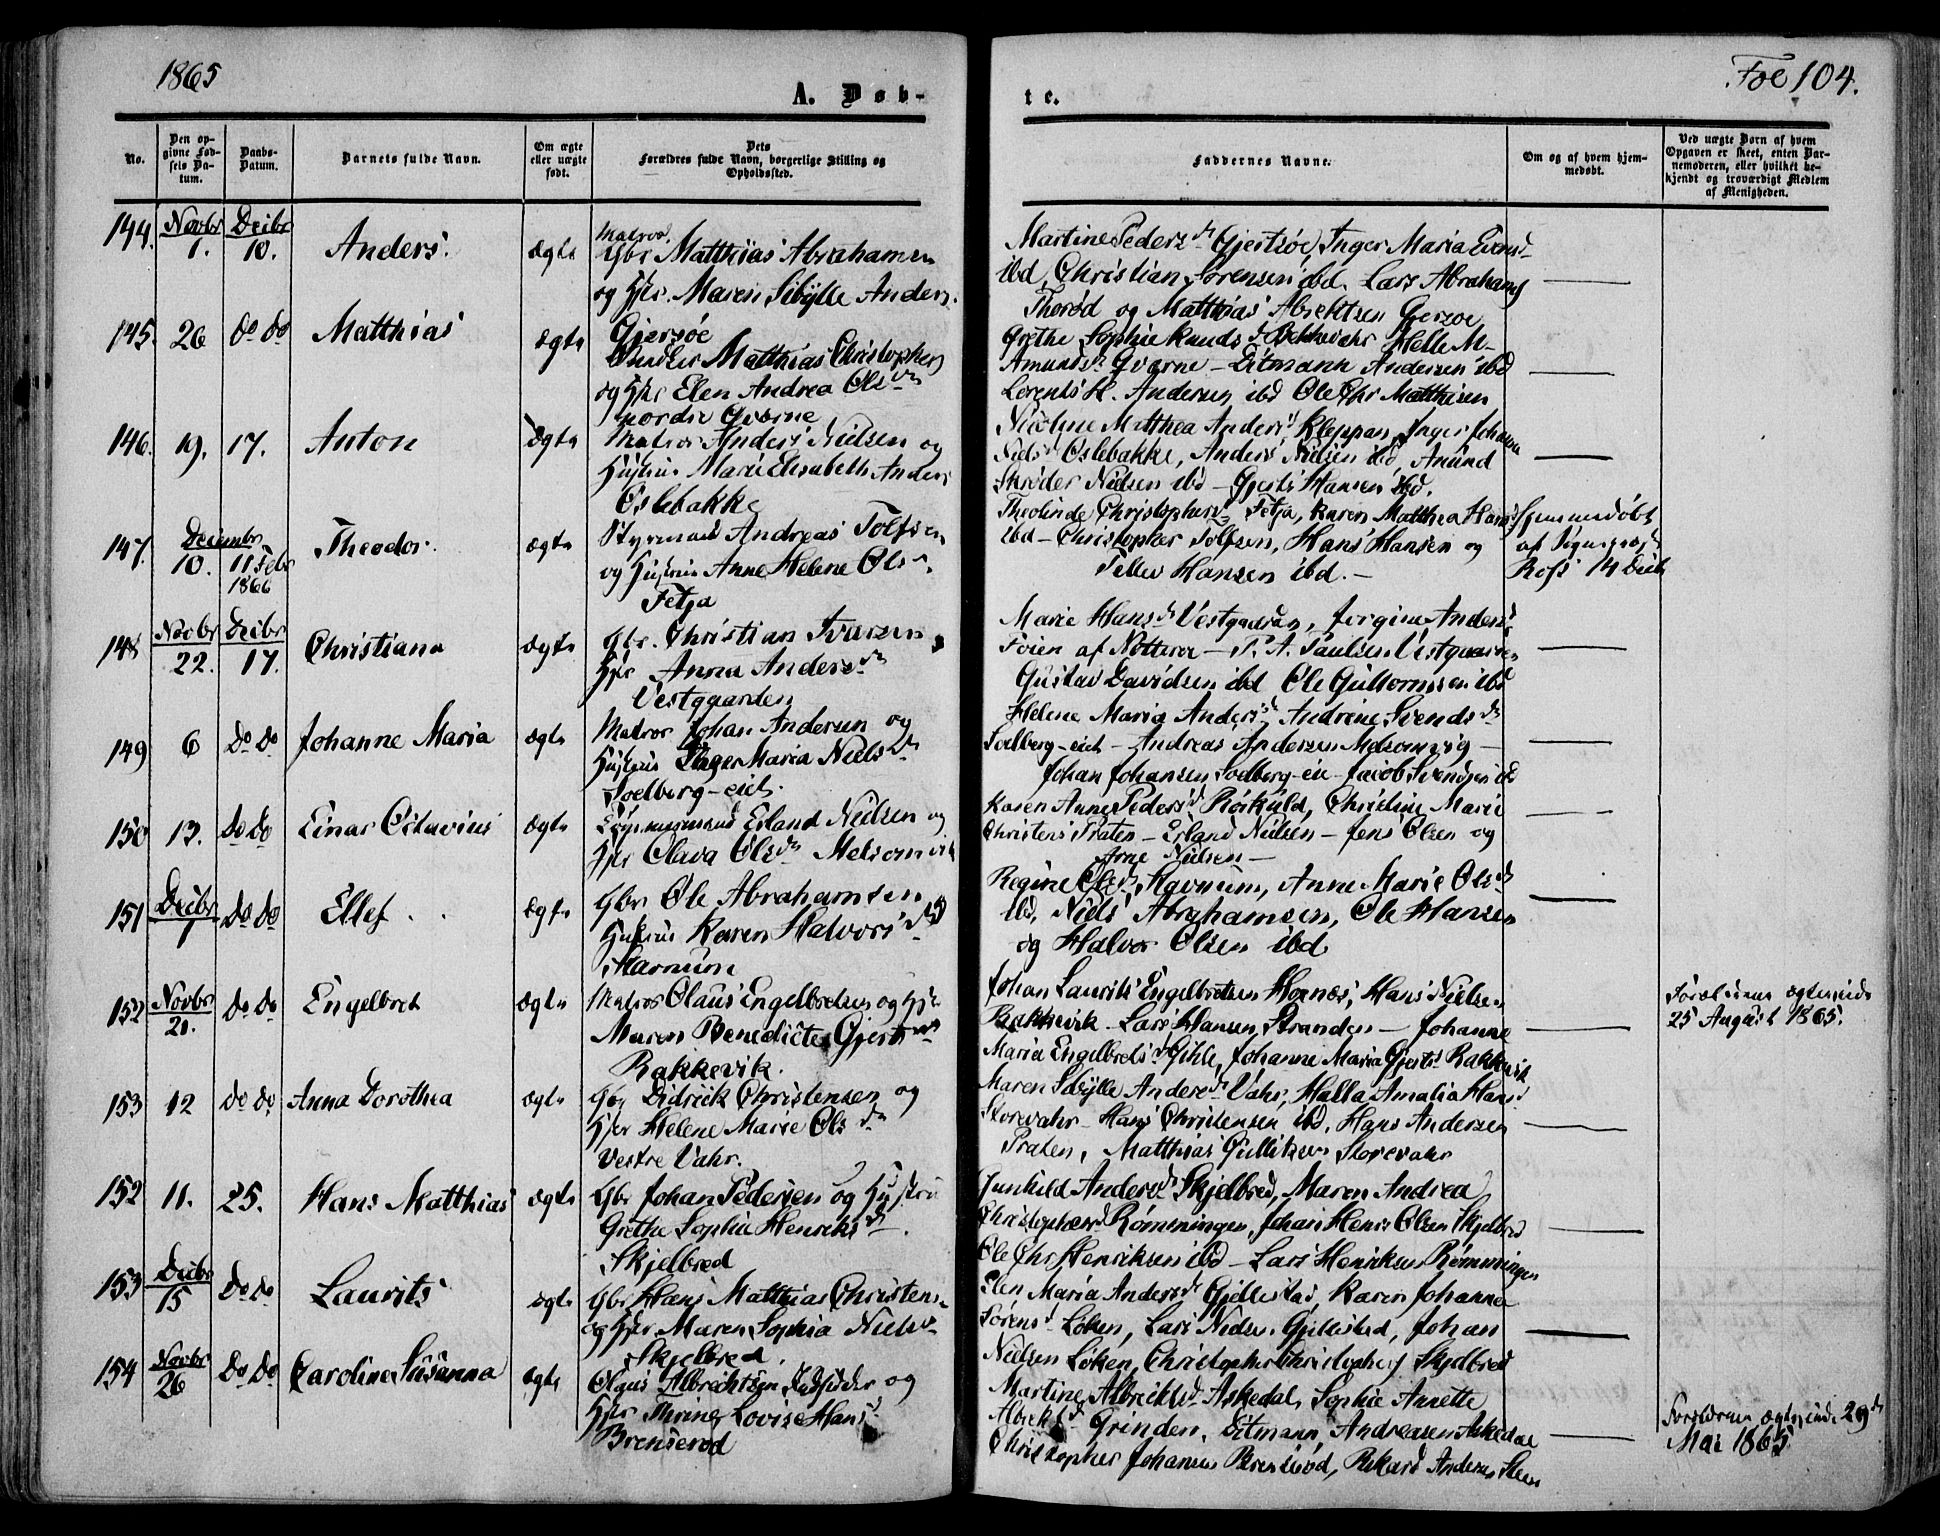 1865
Fol 104.
A. Døb-
te.
No.
Den op-
givne Fød-
sels Da-
tum.
Daabs-
Datum.
Barnets fulde Navn.
Om ægte
eller uægte
født.
Dets
Forældres fulde Navn, borgerlige Stilling og
Opholdssted.
Faddernes Navne.
Om og af hvem hjem-
medøbt.
Ved uægte Børn af hvem
Opgaven er skeet, enten Bar-
nemoderen, eller hvilket be-
kjendt og troværdigt Medlem
af Menigheden.
144.
Novbr
1.
Decbr
10.
Anders.
ægte
Matros.
Gbr Matthias Abrahamsen
og Hjr. Maren Sibylle Anders.
Gjersøe
Martine Peders d Gjertsøe, Inger Maria Evens d
ibd, Christian Sørensen ibd. Lars Abrahams
Thorød og Matthias Abrektsen Gersøe
145.
26
do do
Matthias
ægte
Matthias Christophers
og Hjr Elen Andrea Ols dn
nordre Qværne
Grethe Sophie Knuds d Helle M.
Amunds d Qværne - Ditmann Andersen ibd
Lorents H. Andersen ibd Ole Chr Matthisen
146.
19.
17.
Anton
Ægte
Matros Anders Nielsen og
Hustru Marie Elisabeth Anders
Oslebakke
Nicoline Matthea Anders d Kleppan, Inger Johanne
Niels d Oslebakke, Anders Nielsen ibd, Amund
Skrøder Nielsen ibd - Gjerts Hansen ibd.
147.
Decembr
10.
11 Febr
1866
Theodor.
ægte
Styrmand Andreas Tolfsen
og Hustru Anne Helene Ols d.
Fetja
Theolinde Christophers d Fetja, Karen Matthea Hans d
ibd - Christopher Tolfsen, Hans Hansen og
Tellev Hansen ibd. -
Hjemmedøbt
af
14 Decb
148
Novbr
22.
Decbr
17.
Christiana
ægte
Gbr. Christian Iversen
Hjr Anna Anders dn
Vestgaarden
Marie Hans d Vestgaarden, Jorgine Anders d
Føien af Nøtterøe - P. A. Paulsen Vestgaarden
Gustav Davidsen ibd Ole Guttormsen ibd
149
6
Do Do
Johanne Maria
ægte
Matros Johan Andersen og
Hustru Inger Maria Niels dn
Soelberg-eiet.
Helene Maria Anders d, Andrine Svends dn
Soelberg-eiet - Andreas Andersen Melsomvig -
Johan Johansen Soelberg-eie - Jacob Svendsen ibd
150
13.
Do Do
Einar Octavius
ægte
Tømmermand Erland Nielsen og
Hjr Olava Ols dn Melsomvik
Karen Anne Peders d Røskuld, Christine Marie
Christens d Præten - Erland Nielsen - Jens Olsen og
Arne Nielsen -
151
Decbr
1
Do Do
Ellef.
ægte
Gbr Ole Abrahamsen
Hustru Karen Halvors d
Stavnum
Regine Ols dn Stavnum, Anne Marie Ols dn
ibd, Niels Abrahamsen, Ole Hansen
og Halvor Olsen ibd
152
Novbr
21.
Do Do
Engelbret
ægte
Matros Olaus Engelbretsen og Hjr
Maren Benedicte Gjerts dn
Rakkevik.
Johan Laurits Engelbretsen Hornæs, Hans Nielsen
Rakkevik - Lars Hansen, Stranden - Johanne
Maria Engelbrets d Gihle, Johanne Maria Gjerts d Rakkevik
Forældrene ægteviede
25 August 1865.
153
12
Do Do
Anna Dorothea
ægte
Gbr Didrick Christensen og
Hjr Helene Marie Ols dn
Vestre Vahr.
Maren Sibylle Anders d Vahr, Halla Amalia Hans d
Storevahr - Hans Christensen ibd, Hans Andersen
Præten, Matthias Gullichsen Storevahr
152
11.
25.
Hans Matthias
ægte
Gbr Johan Pedersen og Hustru
Grethe Sophie Henriks dn
Skjelbred
Gunhild Anders d Skjelbred, Maren Andrea
Christophers d Rømmingen, Johan Henr Olsen Skjelbred
Ole Chr Henriksen ibd - Lars Henriksen Rømmingen
153
Decbr
15
Do Do
Laurits
ægte
Gbr Hans Matthias Christens.
og Hjr Maren Sophia Niels d
Skjelbred.
Elen Maria Anders d Gjellestad, Karen Johanne
Sørens d Løken, Lars Niels. Gjellestad, Johan
Nielsen Løken, Christopher Christophers Skjelbred
154
Novbr
26
Do Do
Caroline Susanna
ægte
Olaus Albrechtsen Indsidder og
Hjr Thrine Lovise Hans d
Brenserød
Martine Albrikts d Askedal, Sophie Annette
Albrikts d Grinden, Ditmann Andreasen Askedal
Christopher Johansen Brenserød, Rikard Andersen Steen
Forældrene ægteviede 29 d
Mai 1865